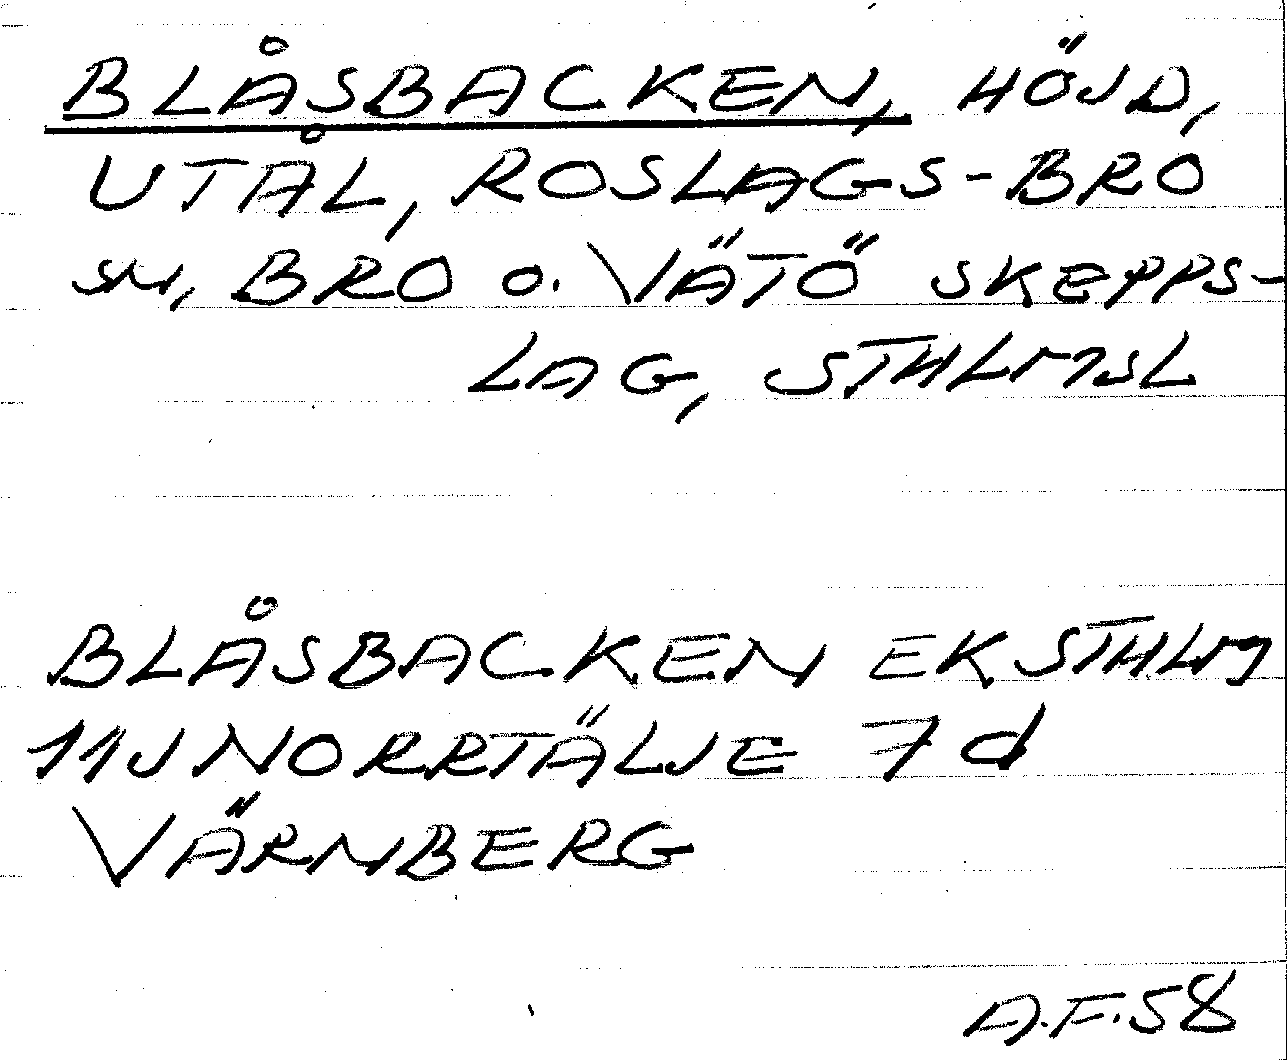 BLÅSBACKEN, HÖJD,
UTÅL, ROSLAGS-BRO
SN, BRO O. VÄTÖ SKEPPS-
LAG, STHLMSL
BLÅSBACKEN EK STHLM
11J NORRTÄLJE 7d
VÄRNBERG
A.F. 58